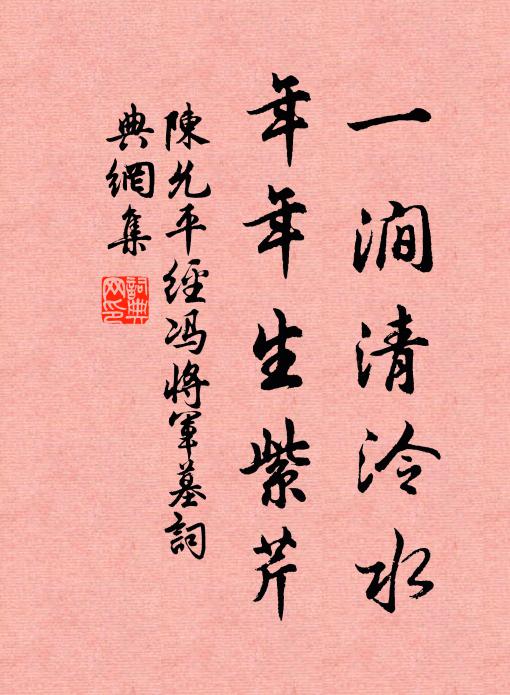 一澗清泠水
年年生紫芹
陳允平經冯將軍墓詞
典網集
詞典
网印